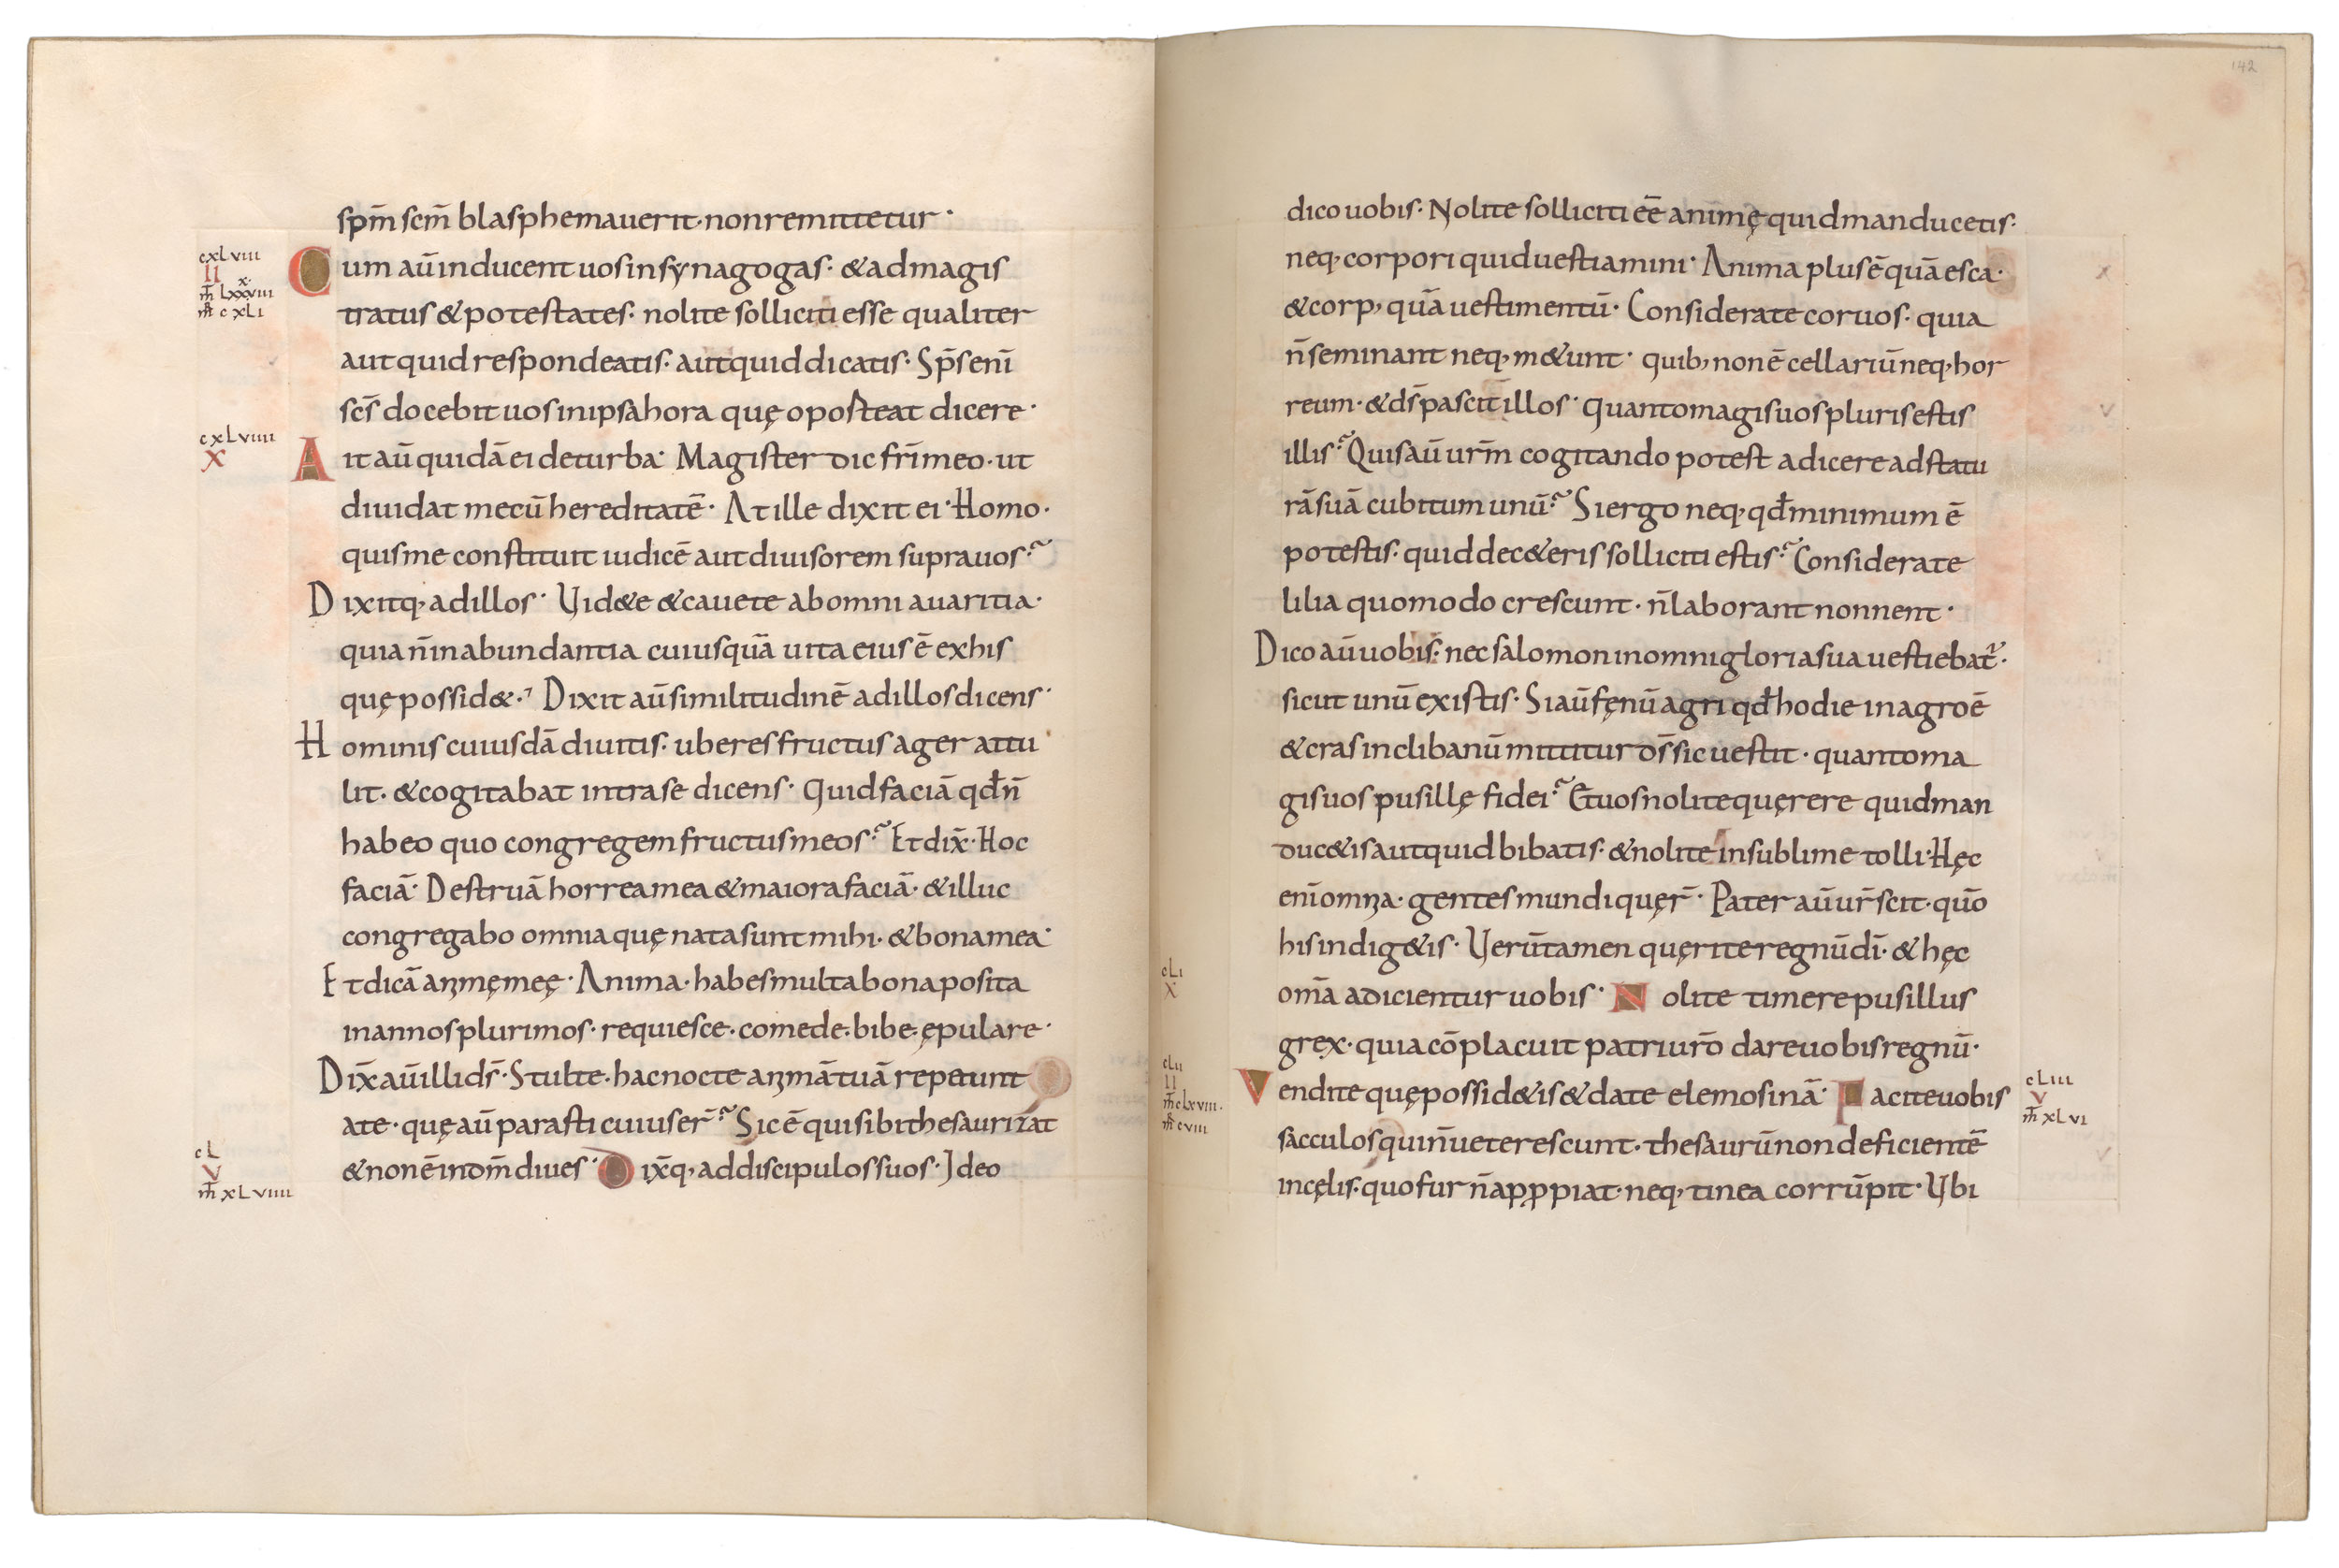 sp̄m sc̄m blasphemauerit· non remittetur·
cxlviii
II
x·
m̄ lxxviii
m̄r cxli
Cum aū inducent uos in synagogas· & ad magis
tratus & potestates· nolite solliciti esse qualiter
aut quid respondeatis· aut quid dicatis· Sp̄s enī
sc̄s docebit uos in ipsa hora quę oposteat dicere·
cxlviiii
X
Ait aū quidā ei de turba· Magister dic fr̄i meo· ut
diuidat mecū hereditatē· At ille dixit ei· Homo·
quis me constituit iudicē aut diuisorem supra uos?
Dixitq, ad illos· Uid&e & cauete ab omni auaritia·
quia n̄ in abundantia cuiusquā uita eius ē ex his
quę possid&· Dixit aū similitudinē ad illos dicens·
Hominis cuiusdā diuitis· uberes fructus ager attu
lit· & cogitabat intra se dicens· Quid faciā qđ n̄
habeo quo congregem fructus meos? Et dix̄· Hoc
faciā· Destruā horrea mea & maiora faciā· & illuc
congregabo omnia quę nata sunt mihi· & bona mea·
Et dicā anımę meę· Anima· habes multa bona posita
in annos plurimos· requiesce· comede· bibe· ępulare·
Dix̄ aū illi ds̄· Stulte· hac nocte animā tuā repetunt
a te· quę aū parasti cuius er̄? Sic ē qui sibi thesaurizat
cl
V
m̄ xlviiii
& non ē in dm̄ diues· Dix̄q, ad discipulos suos· Ideo
142
dico uobis· Nolite solliciti ēē animę quid manducetis·
neq, corpori quid uestiamini· Anima plus ē quā esca·
& corp, quā uestimentū· Considerate coruos· quia
n̄ seminant neq, m&unt· quib, non ē cellariū neq, hor
reum· & ds̄ pascit illos· Quanto magis uos pluris estis
illis? Quis aū ur̄m cogitando potest adicere ad statu
rā suā cubitum unū? Si ergo neq, qđ minimum ē
potestis· quid de c&eris solliciti estis? Considerate
lilia quomodo crescunt· n̄ laborant non nent·
Dico aū uobis· nec salomon in omni gloria sua uestiebat̄r·
sicut unū ex istis· Si aū fęnū agri qđ hodie in agro ē
& cras in clibanū mittitur ds̄ sic uestit· quanto ma
gis uos pusillę fidei? Et uos nolite quęrere quid man
duc&is aut quid bibatis· & nolite in sublime tolli· Hęc
enī omnia· gentes mundi quęr̄· Pater aū ur̄ scit· quō
his indig&is· Uerūtamen quęrite regnū dī· & hęc
cli
X
om̄a adicientur uobis· Nolite timere pusillus
grex· quia cōplacuit patri ur̄o dare uobis regnū·
clii
II
m̄ clxviii·
m̄r cviii
Vendite quę possid&is & date elemosinā· Facite uobis
cliii
V
m̄ xlvi
sacculos qui n̄ ueterescunt· thesaurū non deficientē
in cęlis· quo fur n̄ appropiat· neq, tinea corrūpit· Ubi